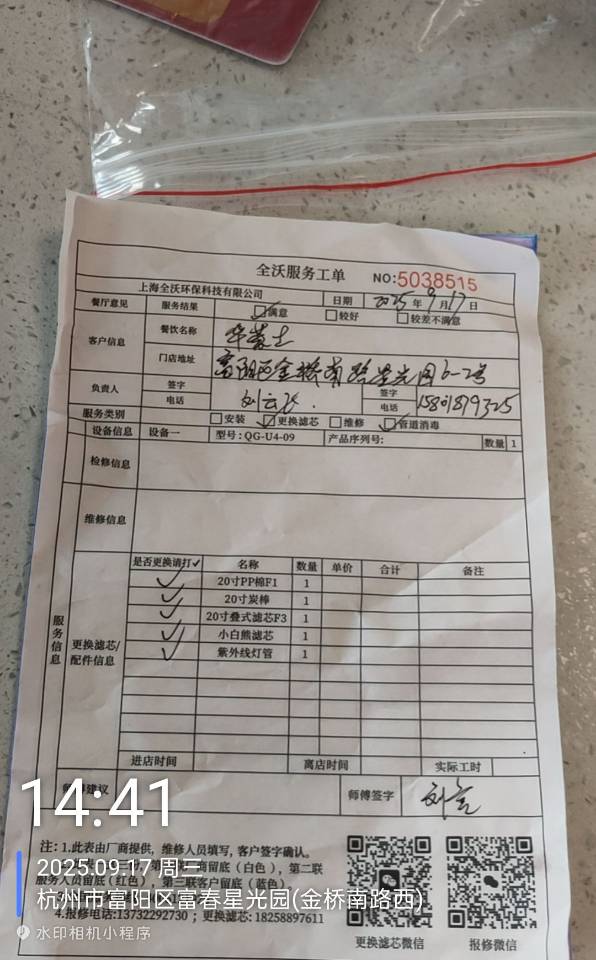 全沃服务工单
NO:5038515
上海全沃环保科技有限公司 日期 2025年9月17日
餐厅意见 服务结果 满意 较好 较差不满意
客户信息 餐饮名称 华莱士
门店地址 富阳区金桥南路星光园6-2号
负责人 签字 签字
电话 电话 15801899325
服务类别 安装 更换滤芯 维修 管道消毒
设备信息 设备一 型号:QG-U4-09 产品序列号: 数量 1
检修信息
维修信息
服务信息
更换滤芯/配件信息
是否更换请打✓ 名称 数量 单价 合计 备注
✓ 20寸PP棉F1 1
✓ 20寸炭棒 1
✓ 20寸叠式滤芯F3 1
✓ 小白熊滤芯 1
✓ 紫外线灯管 1
进店时间 离店时间 实际工时
建议 师傅签字
注:1.此表由厂商提供,维修人员填写,客户签字确认。
商留底(白色),第二联
服务人员留底(红色),第三联客户留底(蓝色)
4.报修电话:13732292730;更换滤芯:18258897611
更换滤芯微信 报修微信
14:41
2025.09.17 周三
杭州市富阳区富春星光园(金桥南路西)
水印相机小程序